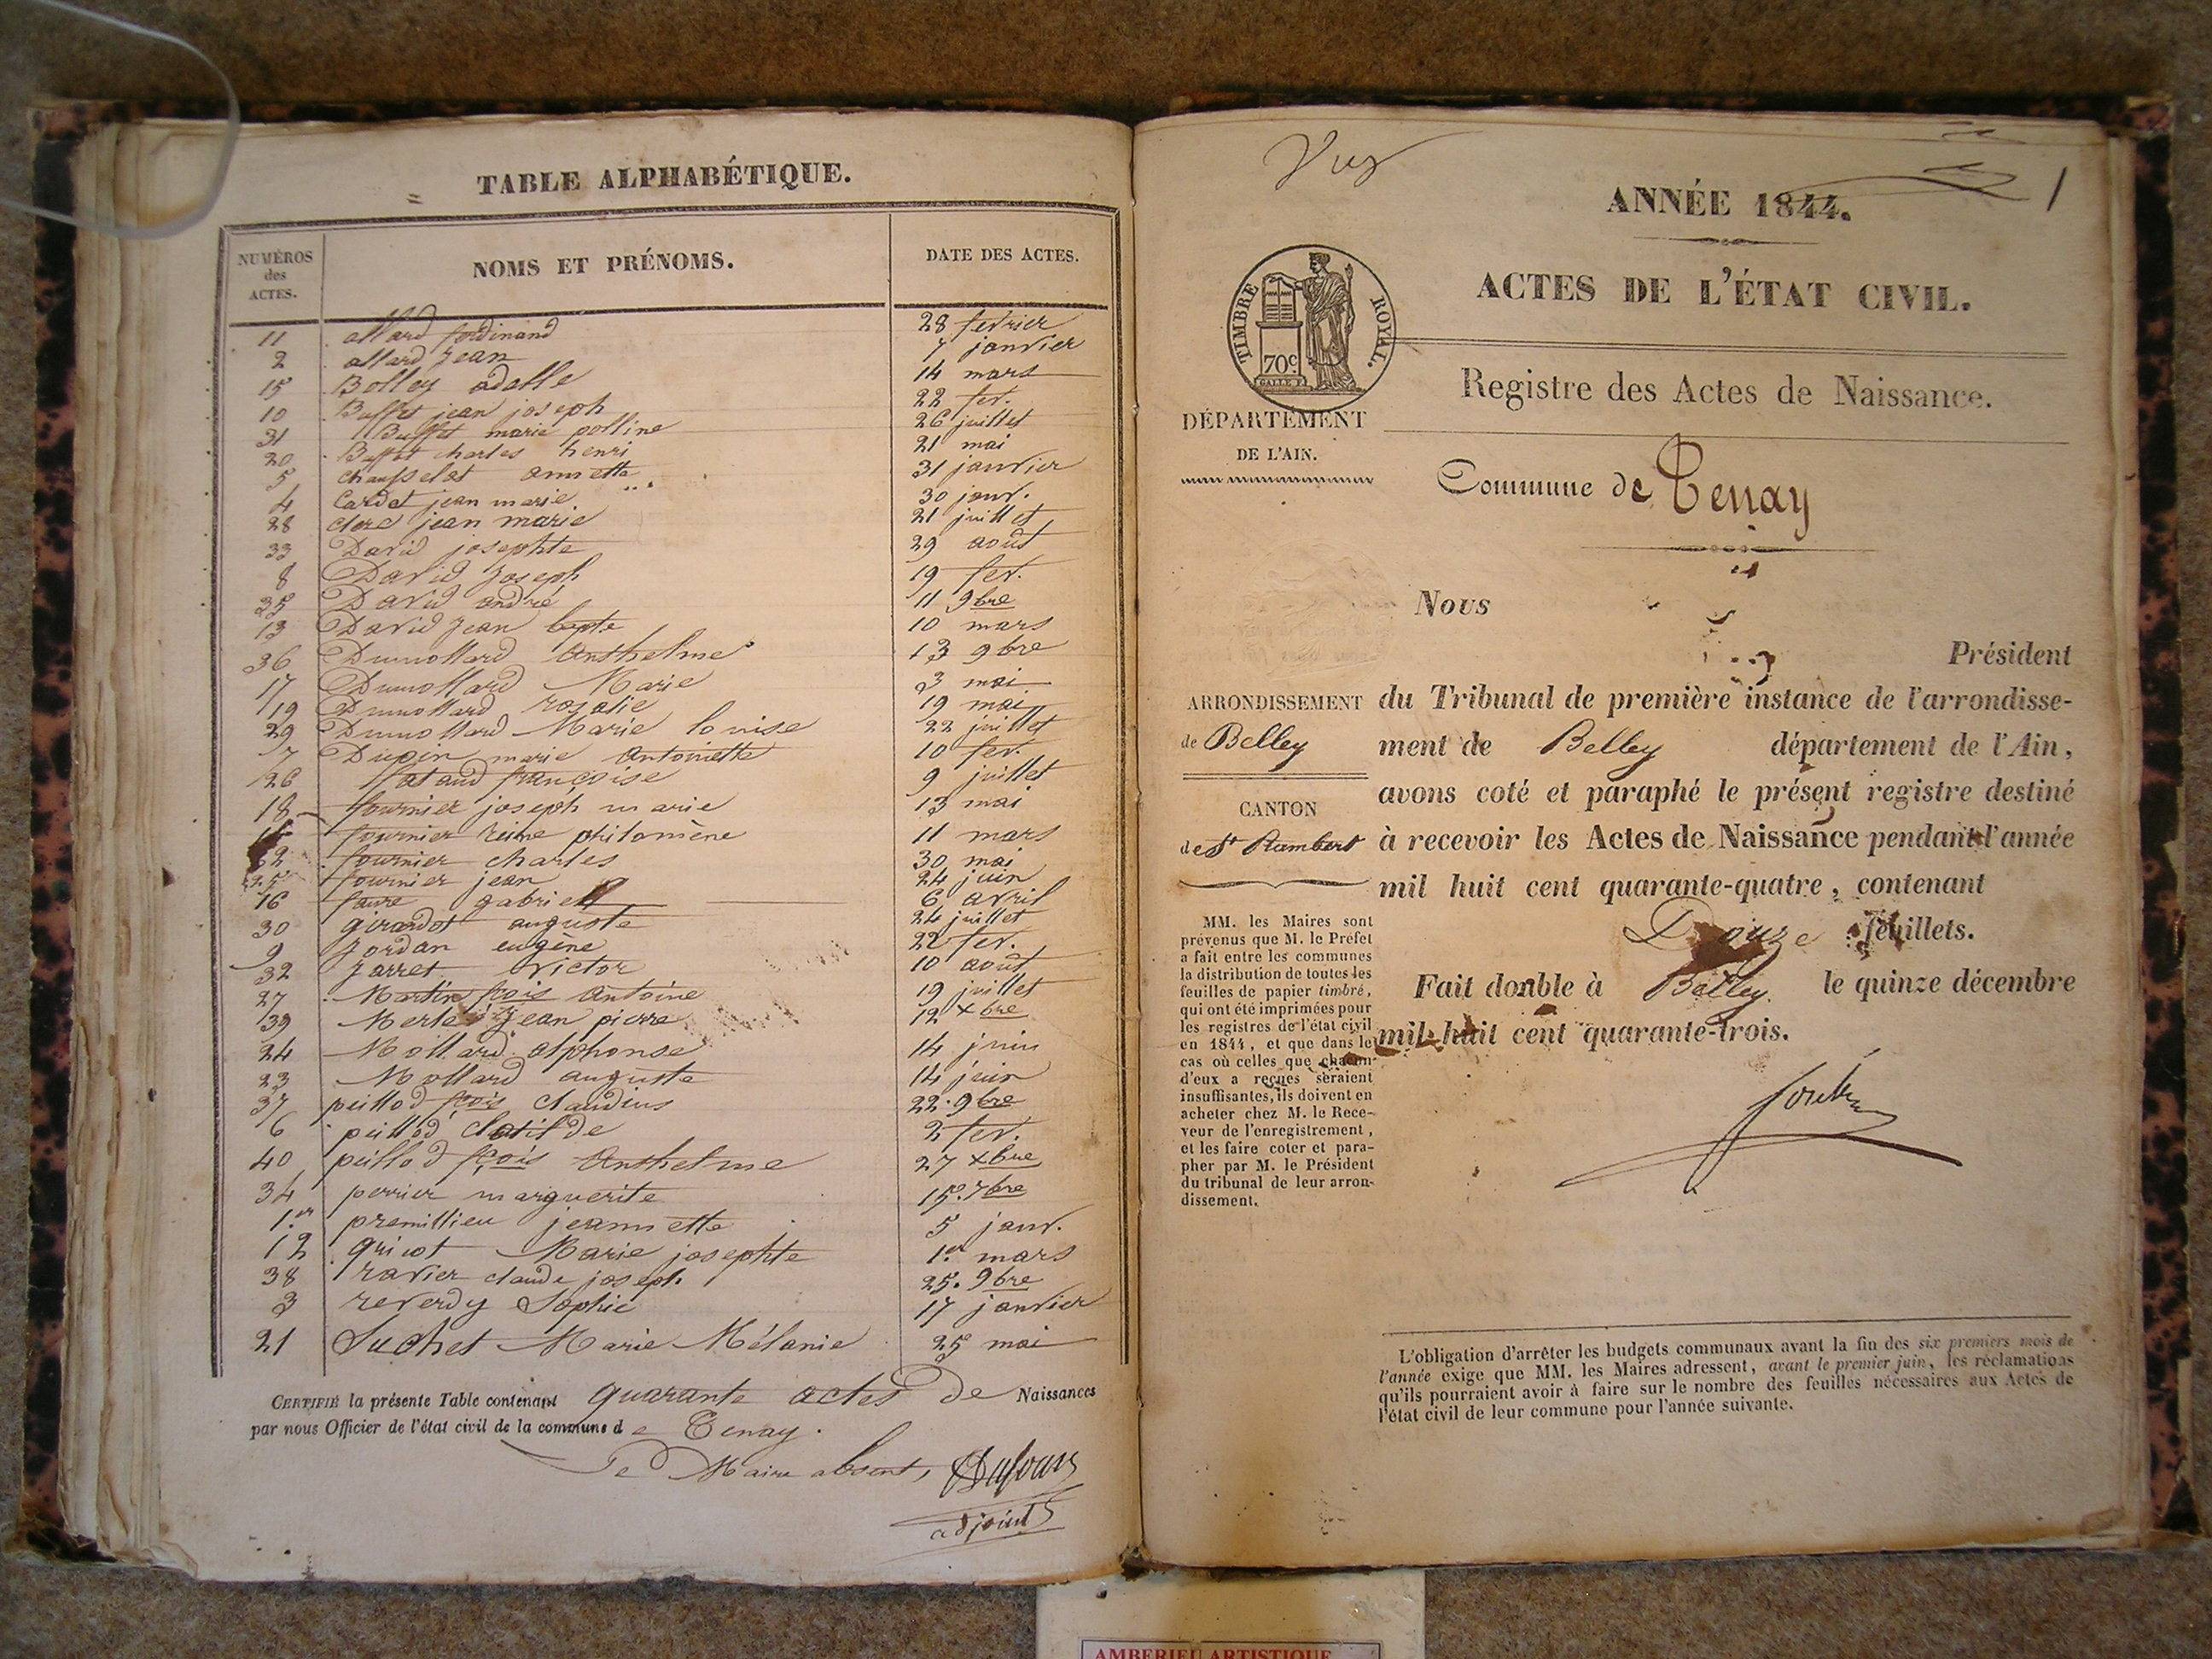 TABLE ALPHABÉTIQUE.
NUMÉROS des ACTES. NOMS ET PRÉNOMS. DATE DES ACTES.
11 allard ferdinand 28 fevrier
2 allard jean 7 janvier
15 Bolley adelle 14 mars
10 Buffet jean joseph 22 fev.
31 Buffet marie polline 26 juillet
20 Buffet charles henri 21 mai
5 chausselat annette 31 janvier
4 Cardet jean marie 30 janv.
28 clerc jean marie 21 juillet
33 David josephte 29 août
8 David Joseph 19 fev.
35 David andré 11 9bre
13 David Jean bapte 10 mars
36 Dumollard Anthelme 13 9bre
17 Dumollard Marie 3 mai
19 Dumollard rosalie 19 mai
29 Dumollard Marie louise 22 juillet
7 Dupin marie Antoinette 10 fev.
26 françoise 9 juillet
18 fournier joseph marie 13 mai
fournier reine philomène 11 mars
22 fournier charles 30 mai
25 fournier jean 24 juin
16 favre gabriel 6 avril
30 girardot auguste 24 juillet
9 Jordan eugène 22 fev.
32 Jarret Victor 10 août
27 Martin fcois Antoine 19 juillet
39 Merle Jean pierre 12 xbre
24 Mollard alphonse 14 juin
23 Mollard auguste 14 juin
37 peillod fcois claudius 22. 9bre
6 peillod Clotilde 2 fev.
40 peillod fçois Anthelme 27 xbre
34 perrier marguerite 15. 7bre
1.er premillieu jeannette 5 janv.
12 quicot Marie josephte 1.er mars
38 ravier claude joseph 25. 9bre
3 reverdy Sophie 17 janvier
21 Suchet Marie Mélanie 25 mai
CERTIFIÉ la présente Table contenant quarante actes de Naissances
par nous Officier de l'état civil de la commune de Tenay.
Le Maire absent,
adjoint
Vu
1
ANNÉE 1844.
ACTES DE L'ÉTAT CIVIL.
TIMBRE ROYAL.
70c
Registre des Actes de Naissance.
DÉPARTEMENT
DE L'AIN.
Commune de Tenay
Nous
Président
ARRONDISSEMENT
de Belley
CANTON
de St Rambert
du Tribunal de première instance de l'arrondisse-
ment de Belley département de l'Ain,
avons coté et paraphé le présent registre destiné
à recevoir les Actes de Naissance pendant l'année
mil huit cent quarante-quatre, contenant
Douze feuillets.
Fait double à Belley. le quinze décembre
mil huit cent quarante-trois.
MM. les Maires sont
prévenus que M. le Préfet
a fait entre les communes
la distribution de toutes les
feuilles de papier timbré,
qui ont été imprimées pour
les registres de l'état civil
en 1844, et que dans le
cas où celles que chacun
d'eux a reçues seraient
insuffisantes, ils doivent en
acheter chez M. le Rece-
veur de l'enregistrement,
et les faire coter et para-
pher par M. le Président
du tribunal de leur arron-
dissement.
L'obligation d'arrêter les budgets communaux avant la fin des six premiers mois de
l'année exige que MM. les Maires adressent, avant le premier juin, les réclamations
qu'ils pourraient avoir à faire sur le nombre des feuilles nécessaires aux Actes de
l'état civil de leur commune pour l'année suivante.
AMBERIEU ARTISTIQUE